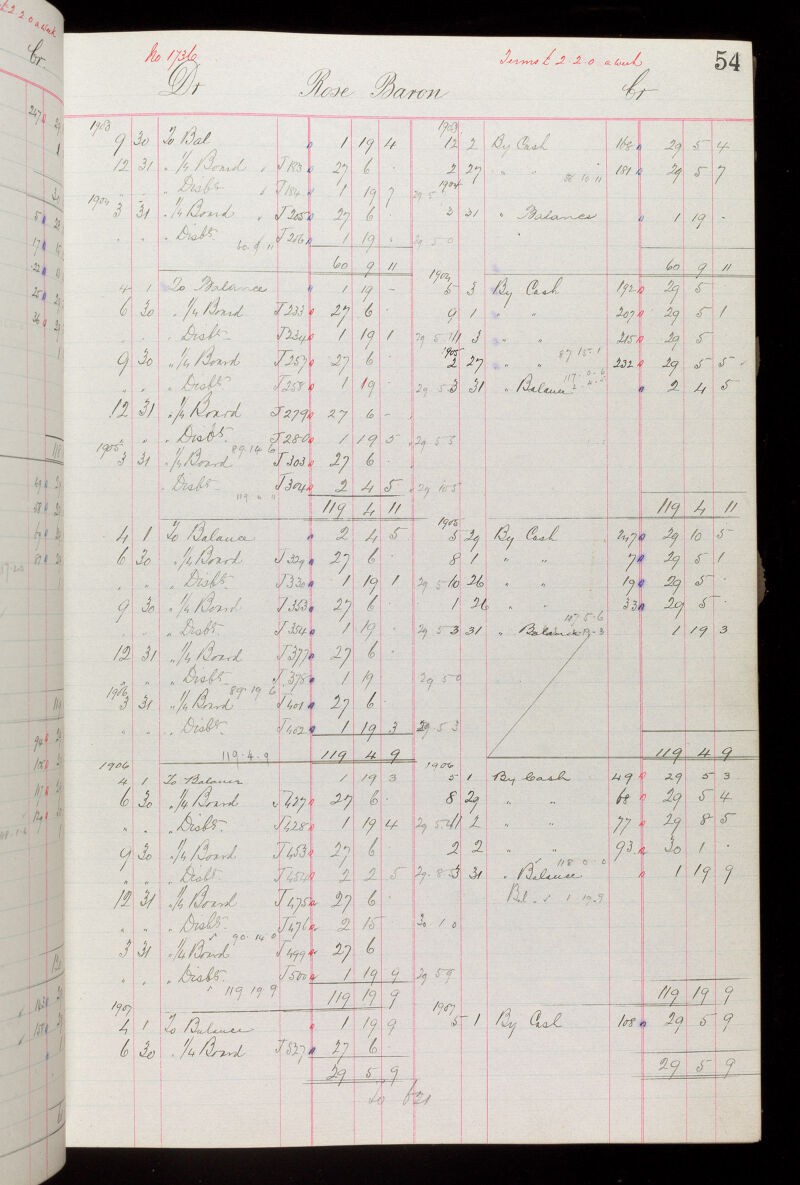 No 1736 Terms £ 2.2.0 a week 54
Dr Rose Baron Cr
1903 1903
9 30 To Bal 1 19 4 12 2 By Cash 168 29 5 4
12 31 " 1/4 Board " J183 27 6 . 2 27 " " 181 29 5 7
" " " Disbts " J184 1 19 7 29 5 58 10 11
1904 1904
3 31 " 1/4 Board " J205 27 6 . 3 31 " Balance 1 19 -
" " " Disbts J206 1 19 . 29 5 0
60 9 11
60 9 11 60 9 11
1904
4 1 To Balance 1 19 - 5 3 By Cash 192 29 5
6 30 " 1/4 Board J233 27 6 . 9 1 " " 207 29 5 1
" " " Disbts J234 1 19 1 29 5 1 11 3 " " 215 29 5
1905 87 15 1
9 30 " 1/4 Board J257 27 6 . 2 27 " " 232 29 5 5
117 0 6
" " " Disbts J258 1 19 . 29 5 3 31 " Balance 2 4 5 2 4 5
12 31 " 1/4 Board J279 27 6 -
" " " Disbts J280 1 19 5 29 5 5
1905 89 14 6
3 31 " 1/4 Board J303 27 6 .
" Disbts J304 2 4 5 29 10 5
119 " "
119 4 11 119 4 11
1905
4 1 To Balance 2 4 5 5 29 By Cash 247 29 10 5
6 30 " 1/4 Board J329 27 6 . 8 1 " " 7 29 5 1
" " " Disbts J330 1 19 1 29 5 10 26 " " 19 29 5 .
9 30 " 1/4 Board J353 27 6 . 1 26 " " 33 29 5 .
117 5 6
" " " Disbts J354 1 19 . 29 5 3 31 " Balance 1 19 3
12 31 " 1/4 Board J377 27 6 .
" " " Disbts J378 1 19 29 5 0
1906 89 19 6
3 31 " 1/4 Board J401 27 6 .
" " " Disbts J402 1 19 3 29 5 3
119.4.9 119 4 9 119 4 9
1906 1906
4 1 To Balance 1 19 3 5 1 By Cash 49 29 5 3
6 30 " 1/4 Board J427 27 6 . 8 29 " " 68 29 5 4
" " " Disbts J428 1 19 4 29 5 4 11 2 " " 77 29 8 5
9 30 " 1/4 Board J453 27 6 . 2 2 " " 93 30 1 .
118 0 0
" " " Disbt J454 2 2 5 29 8 5 3 31 " Balance 1 19 9
12 31 " 1/4 Board J475 27 6 . Bal 1 19 9
" " " Disbts J476 2 15 30 1 0
90 14 0
3 31 " 1/4 Board J499 27 6
" " " Disbts J500 1 19 9 29 5 9
119 19 9
119 19 9 119 19 9
1907 1907
4 1 To Balance 1 19 9 5 1 By Cash 108 29 5 9
6 30 " 1/4 Board J527 27 6 .
29 5 9 29 5 9
To